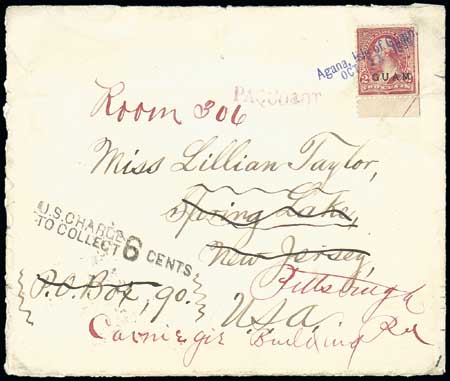 Agana, Isle of Guam,
OCT
GUAM
2
PAQUEBOT
Room 306
Miss Lillian Taylor,
Spring Lake,
New Jersey,
U.S. CHARGE
TO COLLECT 6 CENTS
P.O. Box, 90.
Pittsburgh
U.S.A.
Pa
Carnegie Building